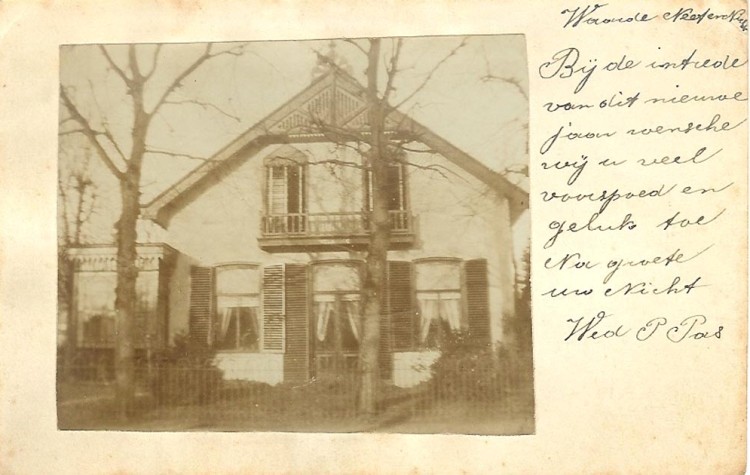 Waarde Neef en Nicht
Bij de intrede
van dit nieuwe
jaar wensche
wij u veel
voorspoed en
geluk toe
Na groete
uw Nicht
Wed P Pas